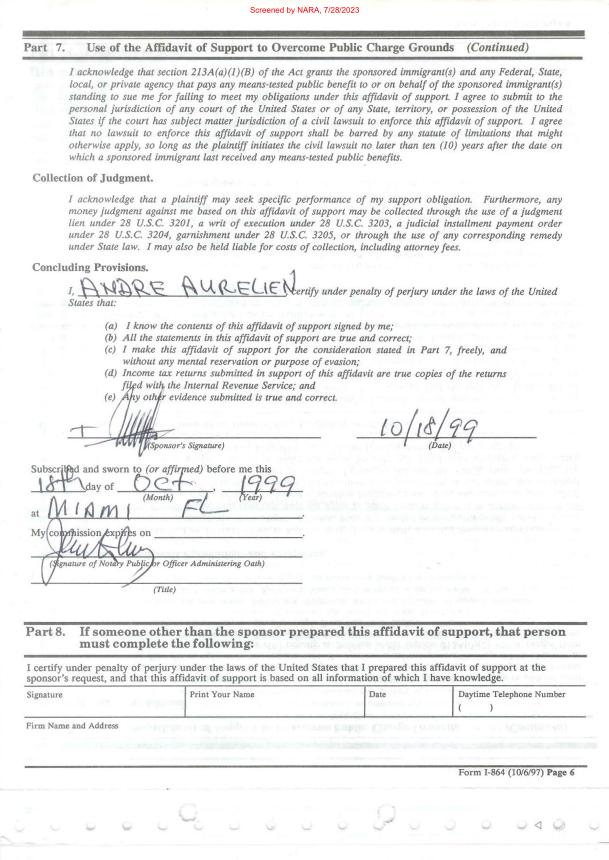 Screened by NARA, 7/28/2023
Part 7. Use of the Affidavit of Support to Overcome Public Charge Grounds (Continued)
I acknowledge that section 213A(a)(1)(B) of the Act grants the sponsored immigrant(s) and any Federal, State,
local, or private agency that pays any means-tested public benefit to or on behalf of the sponsored immigrant(s)
standing to sue me for failing to meet my obligations under this affidavit of support. I agree to submit to the
personal jurisdiction of any court of the United States or of any State, territory, or possession of the United
States if the court has subject matter jurisdiction of a civil lawsuit to enforce this affidavit of support. I agree
that no lawsuit to enforce this affidavit of support shall be barred by any statute of limitations that might
otherwise apply, so long as the plaintiff initiates the civil lawsuit no later than ten (10) years after the date on
which a sponsored immigrant last received any means-tested public benefits.
Collection of Judgment.
I acknowledge that a plaintiff may seek specific performance of my support obligation. Furthermore, any
money judgment against me based on this affidavit of support may be collected through the use of a judgment
lien under 28 U.S.C. 3201, a writ of execution under 28 U.S.C. 3203, a judicial installment payment order
under 28 U.S.C. 3204, garnishment under 28 U.S.C. 3205, or through the use of any corresponding remedy
under State law. I may also be held liable for costs of collection, including attorney fees.
Concluding Provisions.
I, ANDRE AURELIEN certify under penalty of perjury under the laws of the United
States that:
(a) I know the contents of this affidavit of support signed by me;
(b) All the statements in this affidavit of support are true and correct;
(c) I make this affidavit of support for the consideration stated in Part 7, freely, and
without any mental reservation or purpose of evasion;
(d) Income tax returns submitted in support of this affidavit are true copies of the returns
filed with the Internal Revenue Service; and
(e) Any other evidence submitted is true and correct.
10/18/99
(Sponsor's Signature) (Date)
Subscribed and sworn to (or affirmed) before me this
18th day of OCT 1999
(Month) (Year)
at MIAMI FL .
My commission expires on .
(Signature of Notary Public or Officer Administering Oath)
(Title)
Part 8. If someone other than the sponsor prepared this affidavit of support, that person
must complete the following:
I certify under penalty of perjury under the laws of the United States that I prepared this affidavit of support at the
sponsor's request, and that this affidavit of support is based on all information of which I have knowledge.
Signature Print Your Name Date Daytime Telephone Number
( )
Firm Name and Address
Form I-864 (10/6/97) Page 6